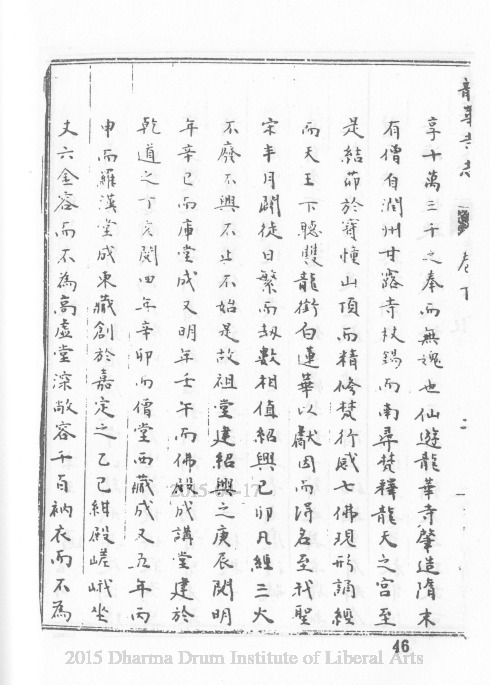 龍華寺志 卷下 二
享十萬三千之奉而無媿也仙遊龍華寺肇造隋末
有僧自潤州甘露寺杖錫而南尋梵釋龍天之宮至
是結茆於寶幢山頂而精修梵行感七佛現形誦經
而天王下聽雙龍銜白蓮華以獻因而得名至我聖
宋年月闢徒日繁而劫數相值紹興己卯凡經三火
不廢不興不止不始是故祖堂建紹興之庚辰閱明
年辛巳而庫堂成又明年壬午而佛殿成講堂建於
乾道之丁亥閱四年辛卯而僧堂西藏成又五年丙
申而羅漢堂成東藏創於嘉定之乙巳紺殿嵯峨坐
丈六金容而不為高虛堂深敞容千百衲衣而不為
2015-04-17
46
2015 Dharma Drum Institute of Liberal Arts